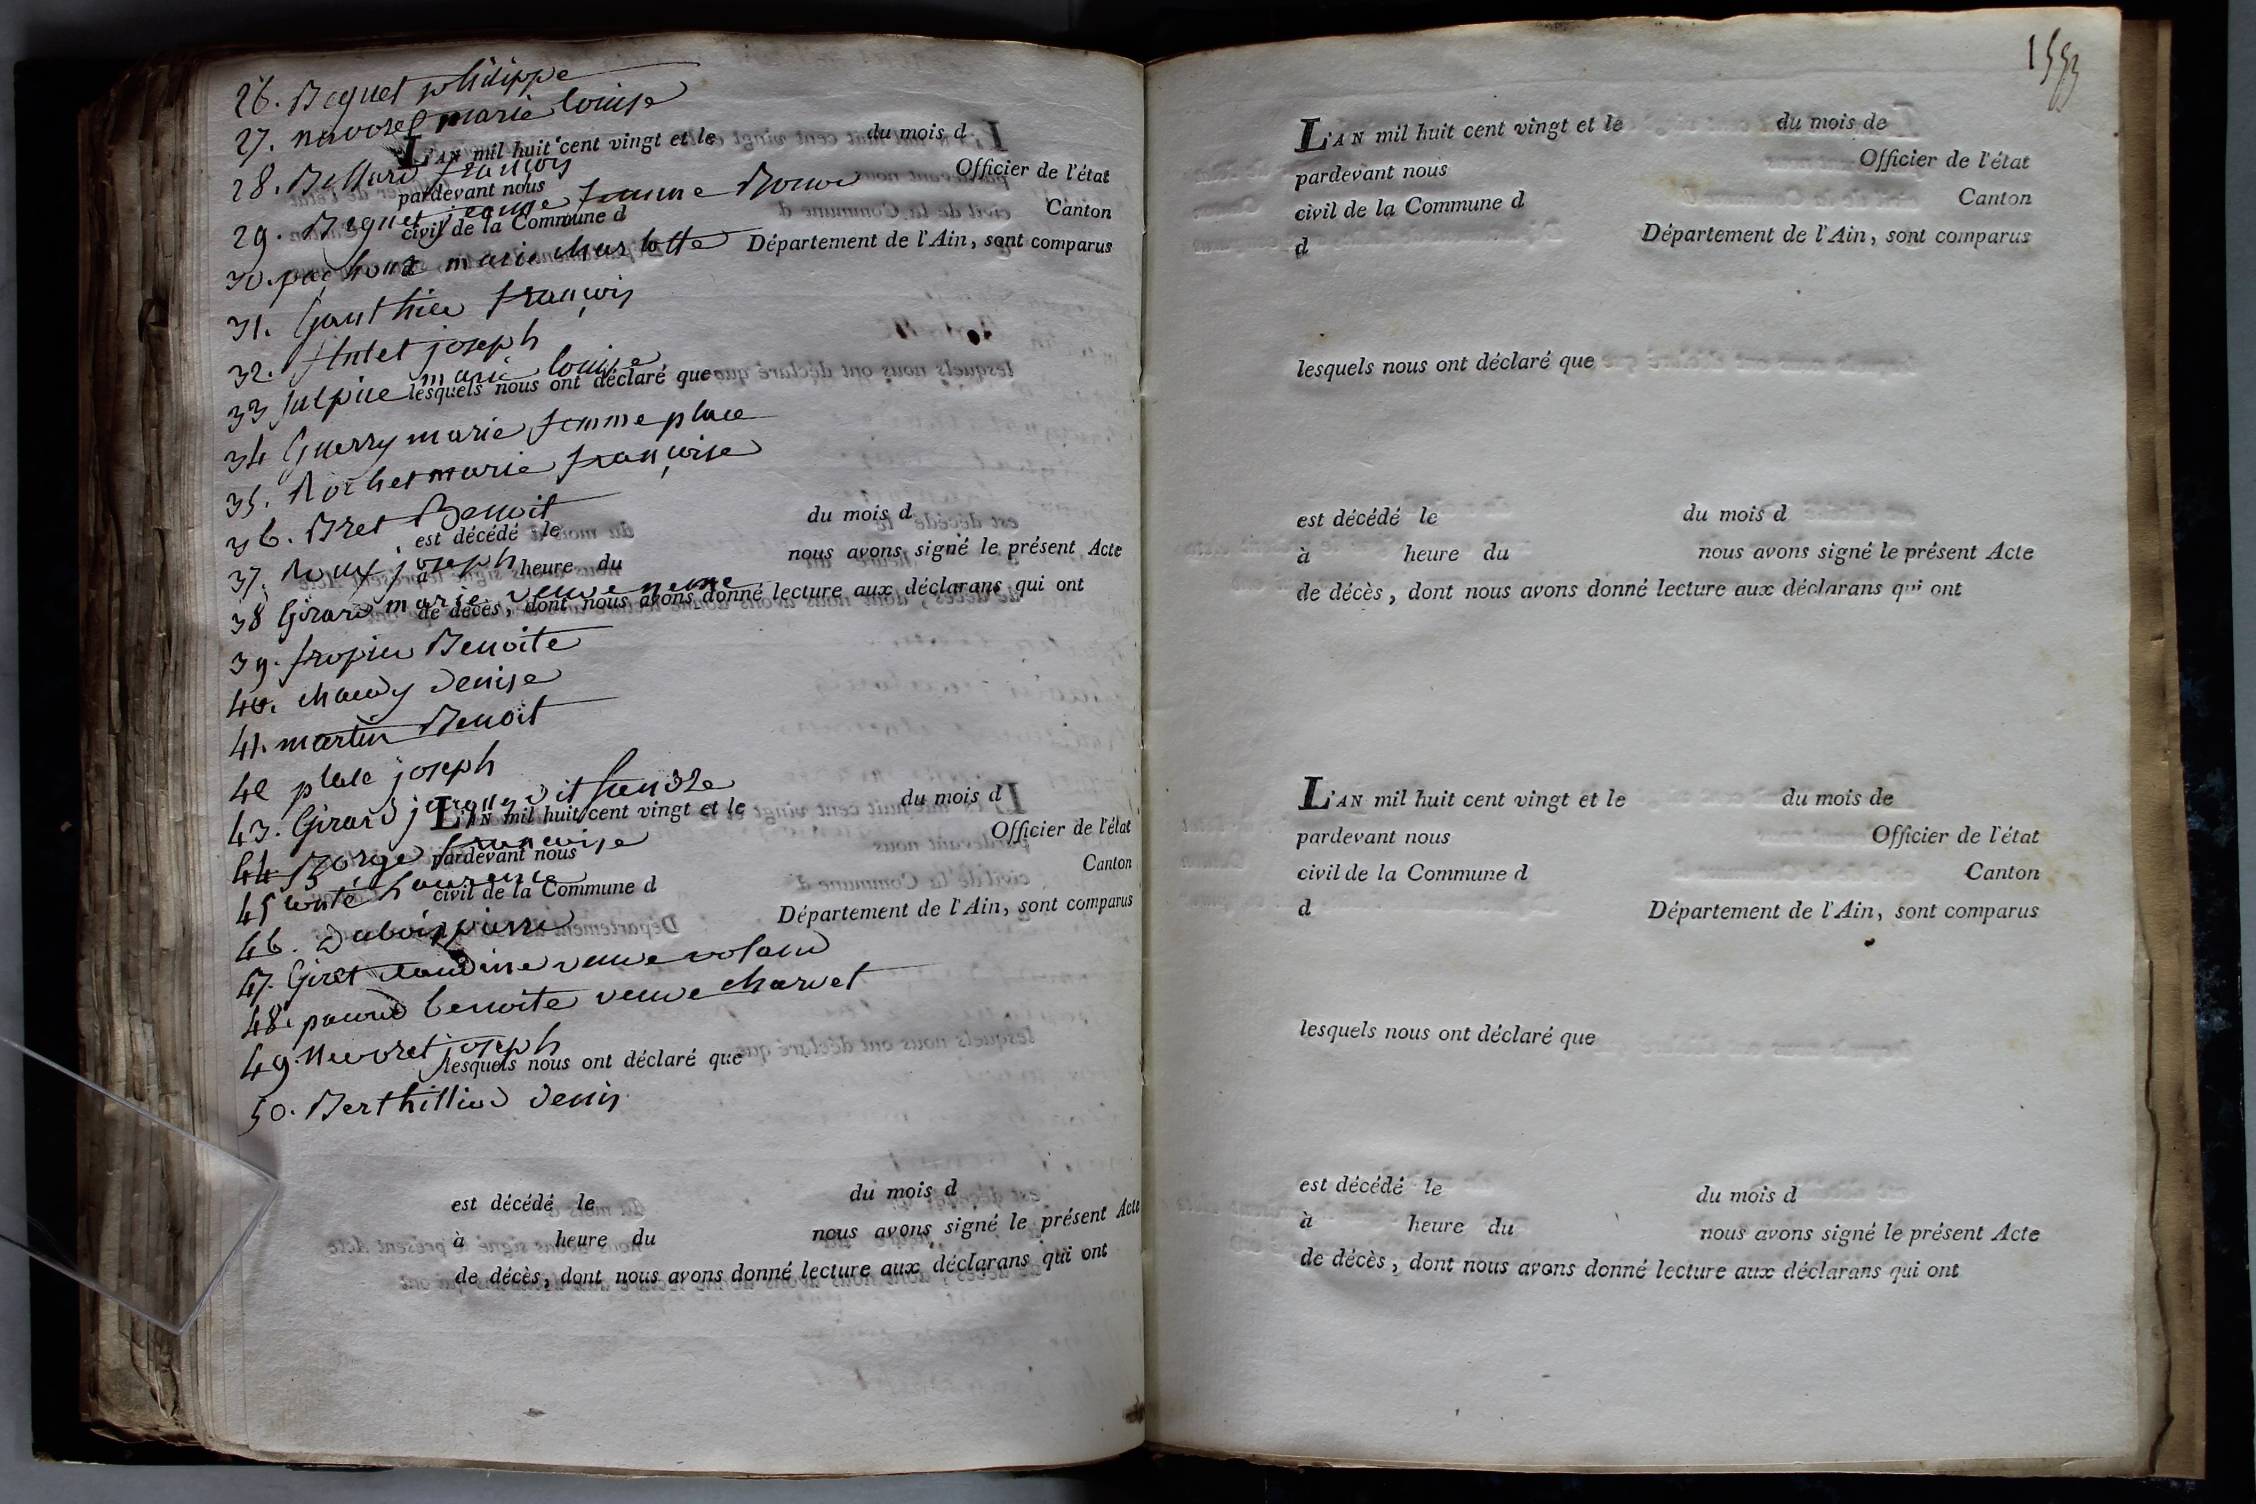 26. Bequet philippe
27. nuvoret marie louise
L'AN mil huit cent vingt et le du mois d
28. Bellard françois
pardevant nous Officier de l'état
29. Bequet jeanne femme
civil de la Commune d Canton
30. pachoud marie charlotte
Département de l'Ain, sont comparus
31. Gauthier françois
32. joseph
33 Sulpice marie louise
lesquels nous ont déclaré que
34 Guerry marie femme place
35. Rochet marie françoise
36. Bret Benoit
est décédé le du mois d
37. Roux joseph
à heure du nous avons signé le présent Acte
38 Girard marie veuve neme
de décès, dont nous avons donné lecture aux déclarans qui ont
39. fropier Benoite
40. chaudy denise
41. martin Benoit
42 place joseph
43. Girard jacques dit
L'AN mil huit cent vingt et le du mois d
44 Borge françoise
pardevant nous Officier de l'état
45 conté laurence
civil de la Commune d Canton
46. dubois pierre
Département de l'Ain, sont comparus
47. Giret claudine veuve voland
48. benoite veuve charvet
49. neuvret joseph
lesquels nous ont déclaré que
50. Berthillied denis
est décédé le du mois d
à heure du nous avons signé le présent Acte
de décès, dont nous avons donné lecture aux déclarans qui ont
1553
L'AN mil huit cent vingt et le du mois de
pardevant nous Officier de l'état
civil de la Commune d Canton
d Département de l'Ain, sont comparus
lesquels nous ont déclaré que
est décédé le du mois d
à heure du nous avons signé le présent Acte
de décès, dont nous avons donné lecture aux déclarans qui ont
L'AN mil huit cent vingt et le du mois de
pardevant nous Officier de l'état
civil de la Commune d Canton
d Département de l'Ain, sont comparus
lesquels nous ont déclaré que
est décédé le du mois d
à heure du nous avons signé le présent Acte
de décès, dont nous avons donné lecture aux déclarans qui ont